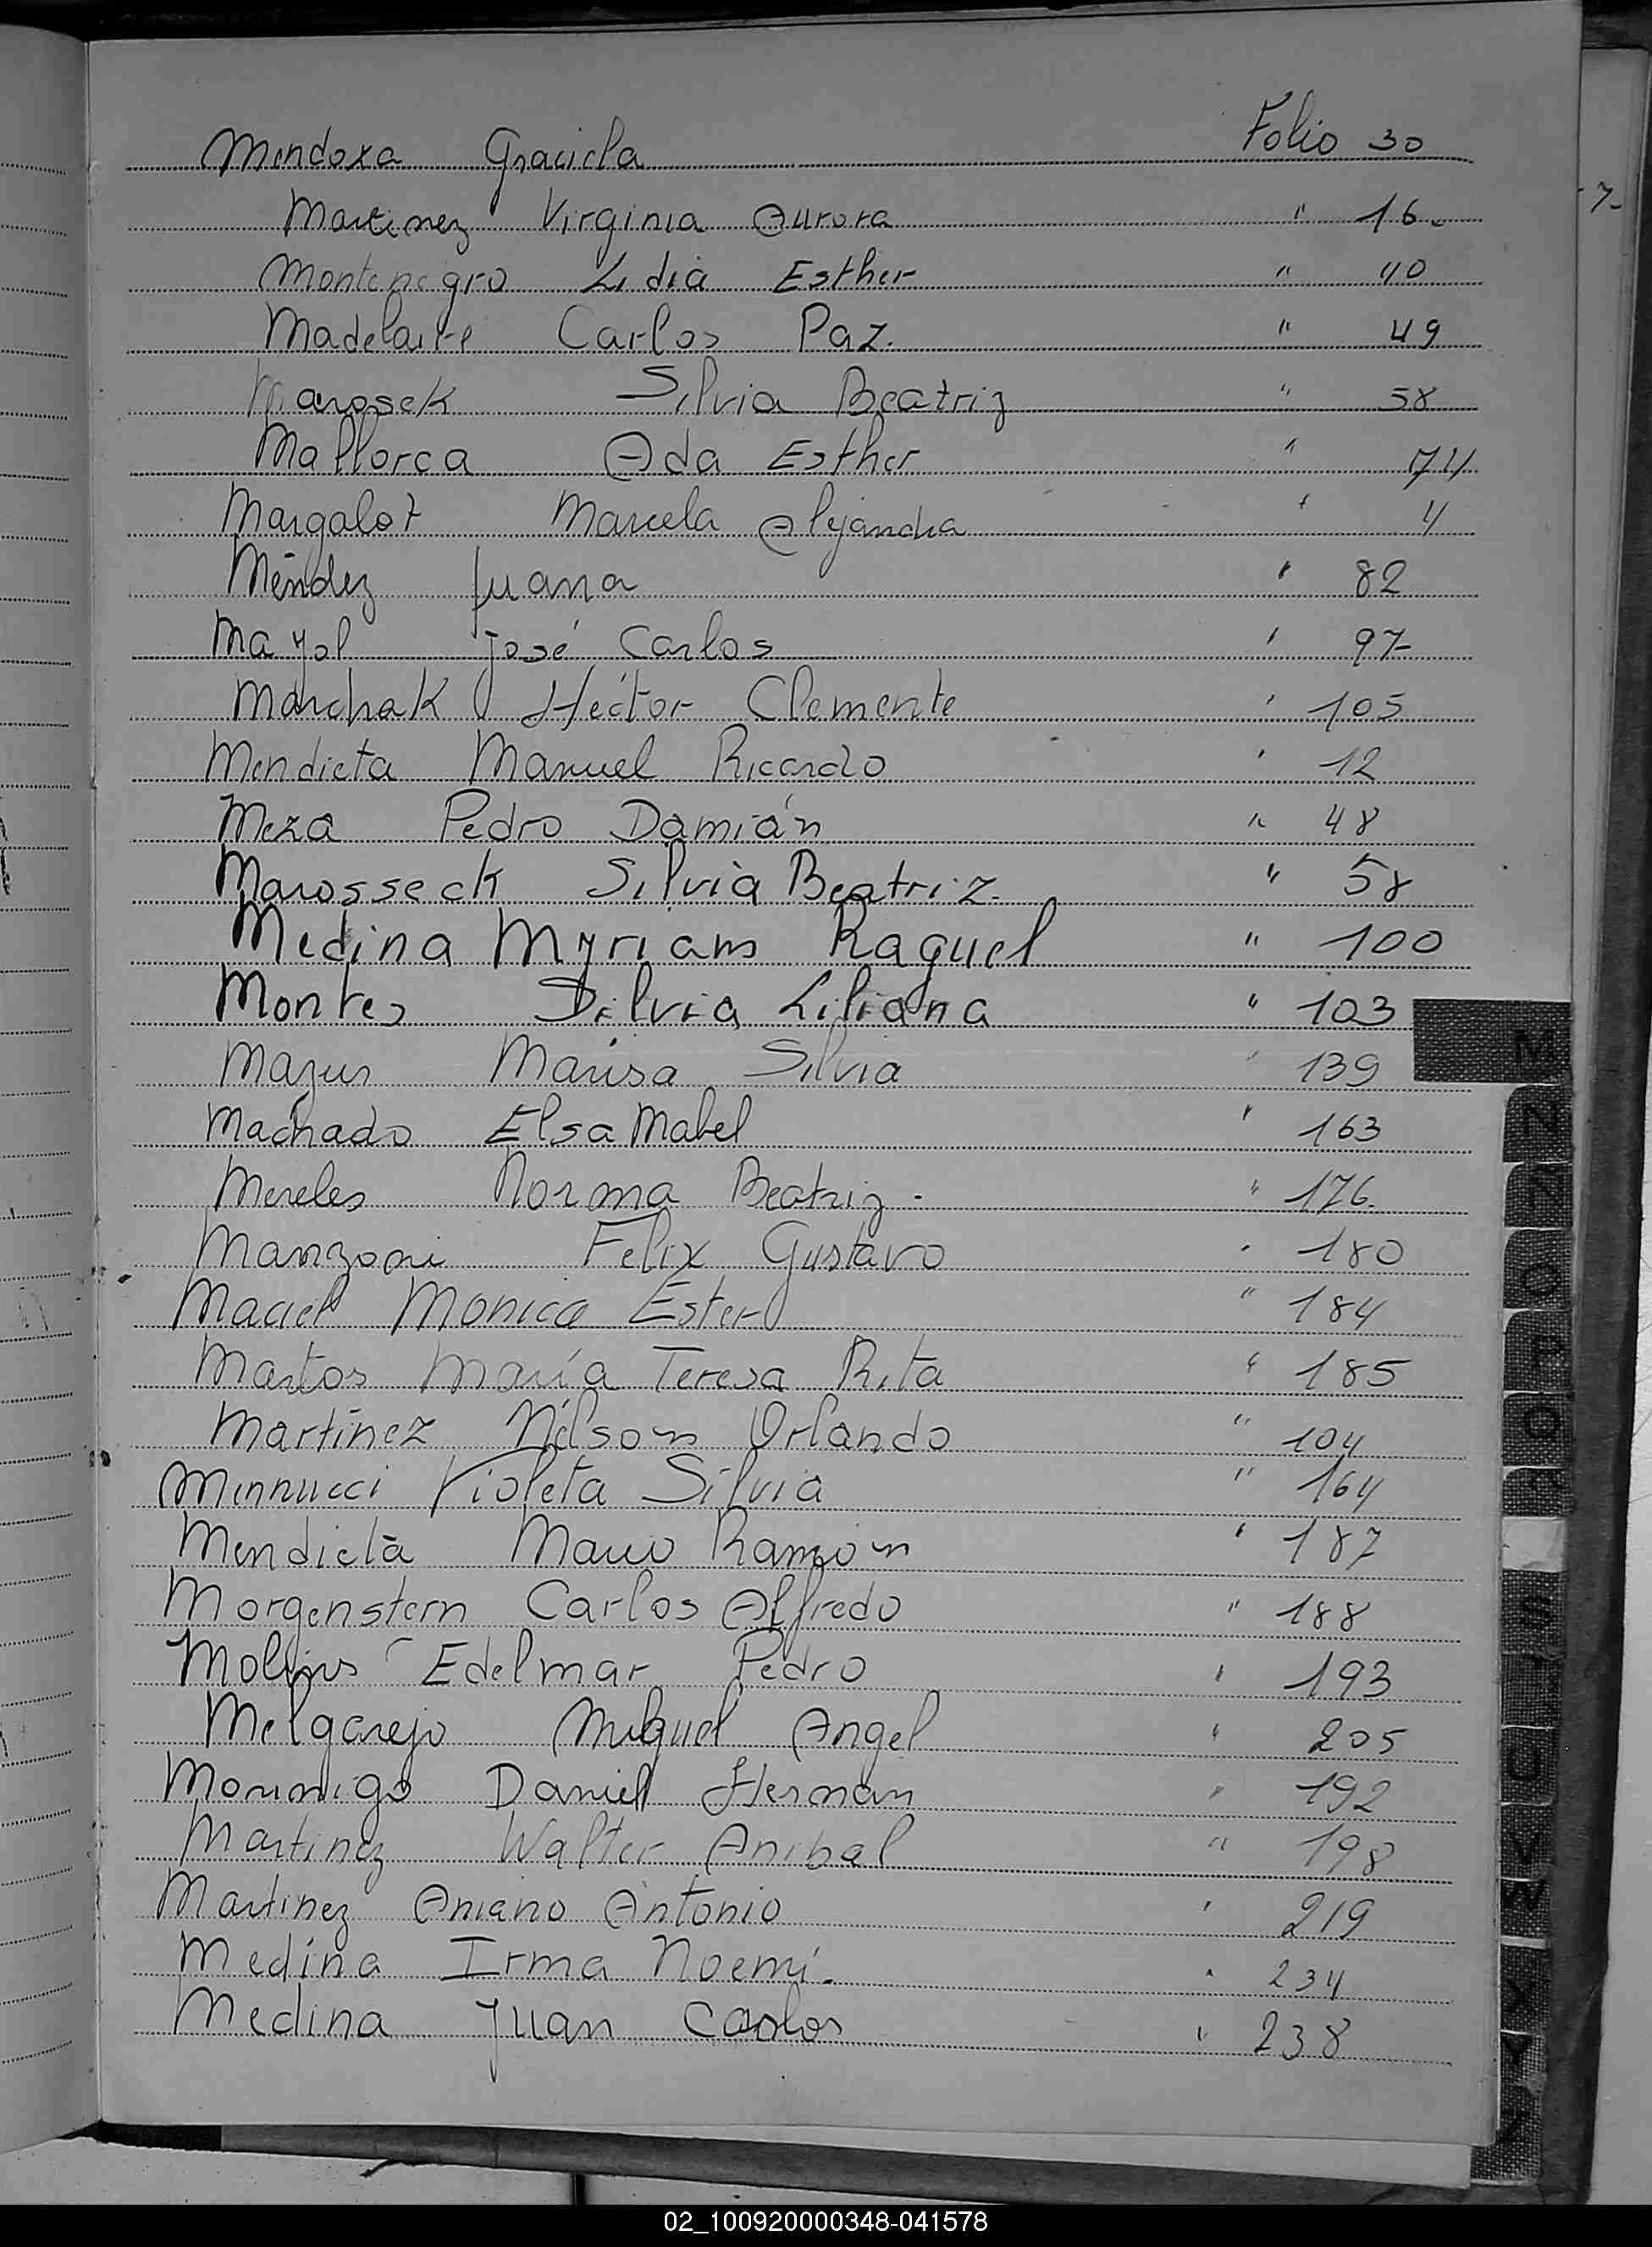 Mendoza Graciela Folio 30
Martinez Virginia Aurora " 16.
Montenegro Lidia Esther " 40
Madelaire Carlos Paz. " 49
Marossek Silvia Beatriz " 58
Mallorca Ada Esther " 74
Margalot Marcela Alejandra " 4
Méndez Juana " 82
Mayol José Carlos " 97
Marchak Héctor Clemente " 105
Mendieta Manuel Ricardo " 12
Meza Pedro Damián " 48
Marosseck Silvia Beatriz. " 58
Medina Myriam Raquel " 100
Montes Silvia Liliana " 103
Mazur Marisa Silvia " 139
Machado Elsa Mabel " 163
Mereles Norma Beatriz. " 176.
Manzoni Felix Gustavo " 180
Maciel Monica Ester " 184
Martos María Teresa Rita " 185
Martínez Nelson Orlando " 104
Mennucci Violeta Silvia " 164
Mendieta Mario Ramón " 187
Morgenstern Carlos Alfredo " 188
Edelmar Pedro " 193
Melgarejo Miguel Angel " 205
Morinigo Daniel Hernan " 192
Martinez Walter Anibal " 198
Martinez Aniano Antonio " 219
Medina Irma Noemí. " 234
Medina Juan Carlos " 238
M
N
Ñ
O
P
Q
S
U
V
W
X
Y
Z
02_100920000348-041578